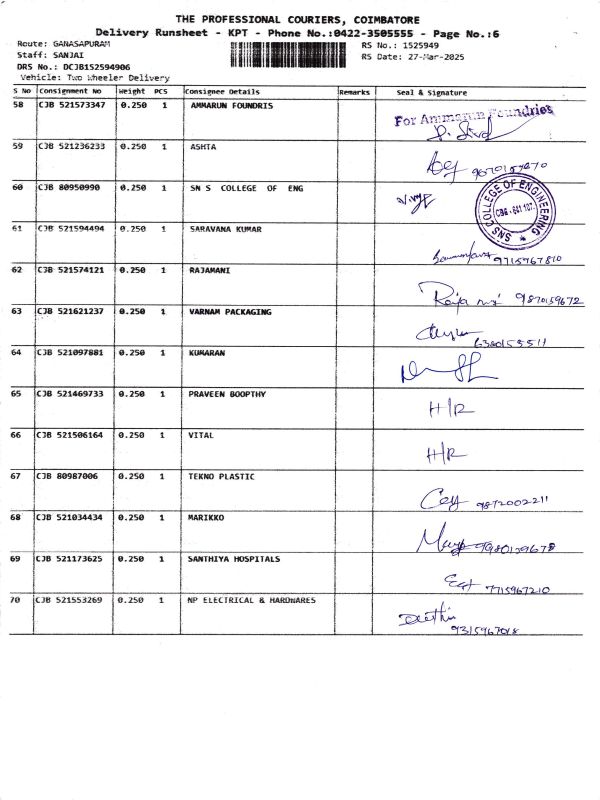 THE PROFESSIONAL COURIERS, COIMBATORE
Delivery Runsheet - KPT - Phone No.:0422-3505555 - Page No.:6
Route: GANASAPURAM RS No.: 1525949
Staff: SANJAI RS Date: 27-Mar-2025
DRS No.: DCJB152594906
Vehicle: Two Wheeler Delivery
S No Consignment No Weight PCS Consignee Details Remarks Seal & Signature
58 CJB 521573347 0.250 1 AMMARUN FOUNDRIS
For Ammarun Foundries
59 CJB 521236233 0.250 1 ASHTA
60 CJB 80950990 0.250 1 SN S COLLEGE OF ENG
SNS COLLEGE OF ENGINEERING
CBE - 641 107
61 CJB 521594494 0.250 1 SARAVANA KUMAR
9715767810
62 CJB 521574121 0.250 1 RAJAMANI
9870159672
63 CJB 521621237 0.250 1 VARNAM PACKAGING
6380155511
64 CJB 521097881 0.250 1 KUMARAN
65 CJB 521469733 0.250 1 PRAVEEN BOOPTHY
H/R
66 CJB 521506164 0.250 1 VITAL
H/R
67 CJB 80987006 0.250 1 TEKNO PLASTIC
9872002211
68 CJB 521034434 0.250 1 MARIKKO
69 CJB 521173625 0.250 1 SANTHIYA HOSPITALS
7715967210
70 CJB 521553269 0.250 1 NP ELECTRICAL & HARDWARES